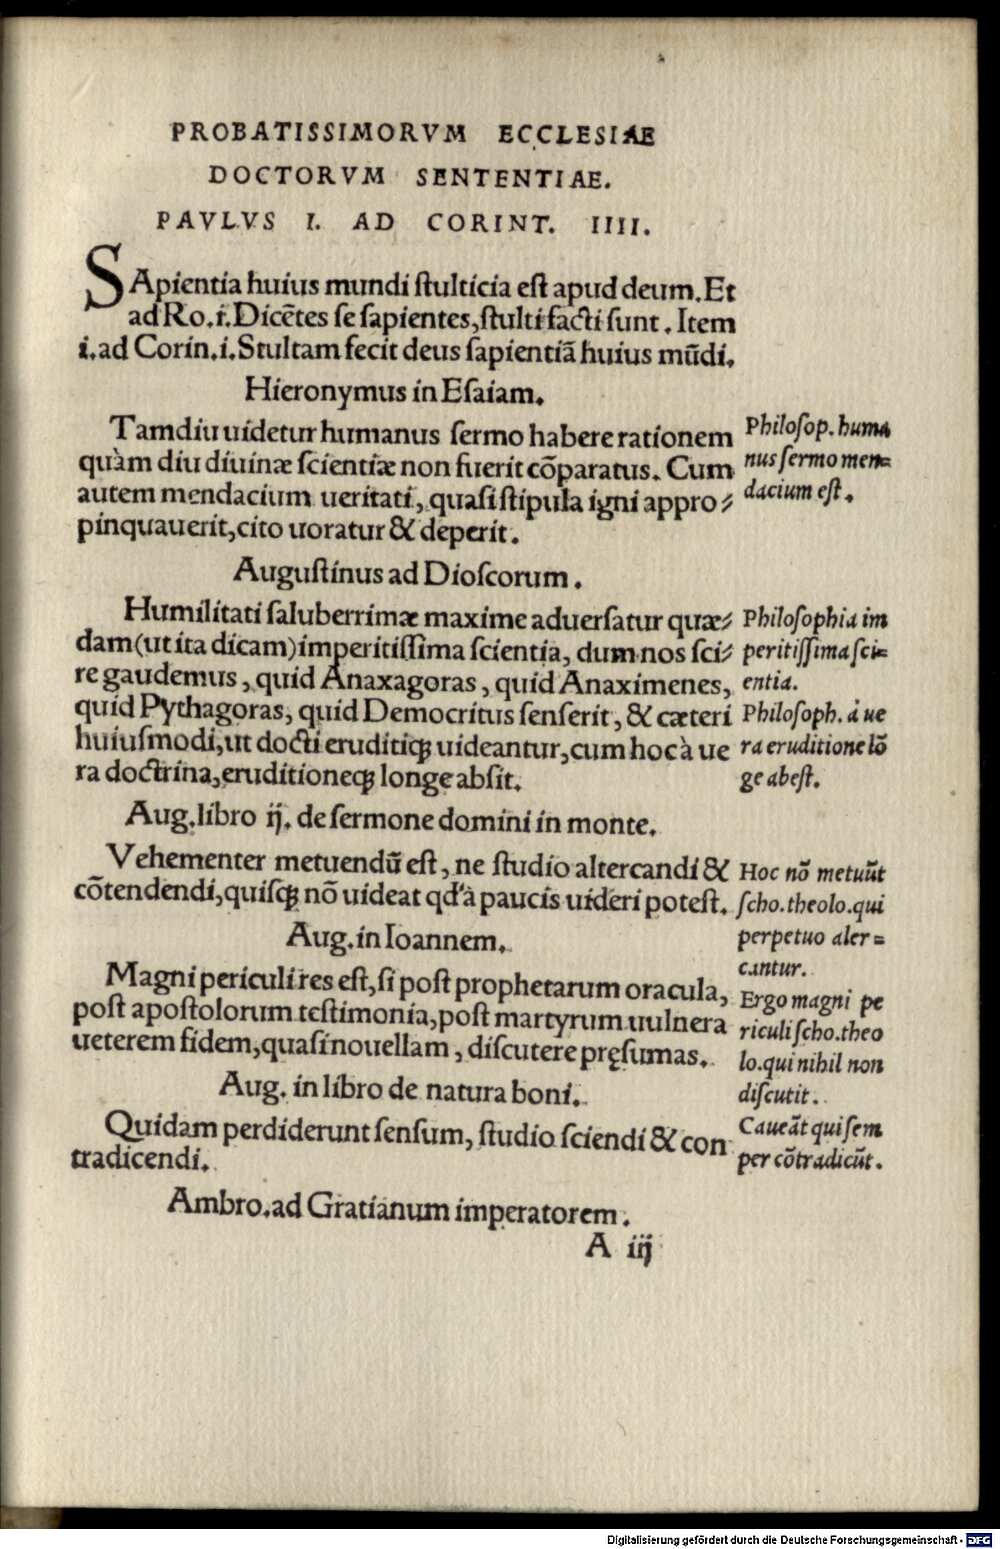 PROBATISSIMORVM ECCLESIAE
DOCTORVM SENTENTIAE.
PAVLVS I. AD CORINT. IIII.
SApientia huius mundi ſtulticia eſt apud deum. Et
ad Ro. i. Dicẽtes ſe ſapientes, ſtulti facti ſunt. Item
i. ad Corin. i. Stultam fecit deus ſapientiã huius mũdi.
Hieronymus in Eſaiam.
Tamdiu uidetur humanus ſermo habere rationem
quàm diu diuinæ ſcientiæ non fuerit cõparatus. Cum
autem mendacium ueritati, quaſi ſtipula igni appro⸗
pinquauerit, cito uoratur & deperit.
Philoſop. huma
nus ſermo men⸗
dacium eſt.
Auguſtinus ad Dioſcorum.
Humilitati ſaluberrimæ maxime aduerſatur quæ⸗
dam (ut ita dicam) imperitiſſima ſcientia, dum nos ſci⸗
re gaudemus, quid Anaxagoras, quid Anaximenes,
quid Pythagoras, quid Democritus ſenſerit, & cæteri
huiuſmodi, ut docti eruditiqꝫ uideantur, cum hoc à ue
ra doctrina, eruditioneqꝫ longe abſit.
Philoſophia im
peritiſſima ſci⸗
entia.
Philoſoph. à ue
ra eruditione lõ
ge abeſt.
Aug. libro ij. de ſermone domini in monte.
Vehementer metuendũ eſt, ne ſtudio altercandi &
cõtendendi, quiſqꝫ nõ uideat qd' à paucis uideri poteſt.
Hoc nõ metuũt
ſcho. theolo. qui
perpetuo alter⸗
cantur.
Aug. in Ioannem.
Magni periculi res eſt, ſi poſt prophetarum oracula,
poſt apoſtolorum teſtimonia, poſt martyrum uulnera
ueterem fidem, quaſi nouellam, diſcutere pręſumas.
Ergo magni pe
riculi ſcho. theo
lo. qui nihil non
diſcutit.
Aug. in libro de natura boni.
Quidam perdiderunt ſenſum, ſtudio ſciendi & con
tradicendi.
Caueãt qui ſem
per cõtradicũt.
Ambro. ad Gratianum imperatorem.
A iij
Digitalisierung gefördert durch die Deutsche Forschungsgemeinschaft - DFG